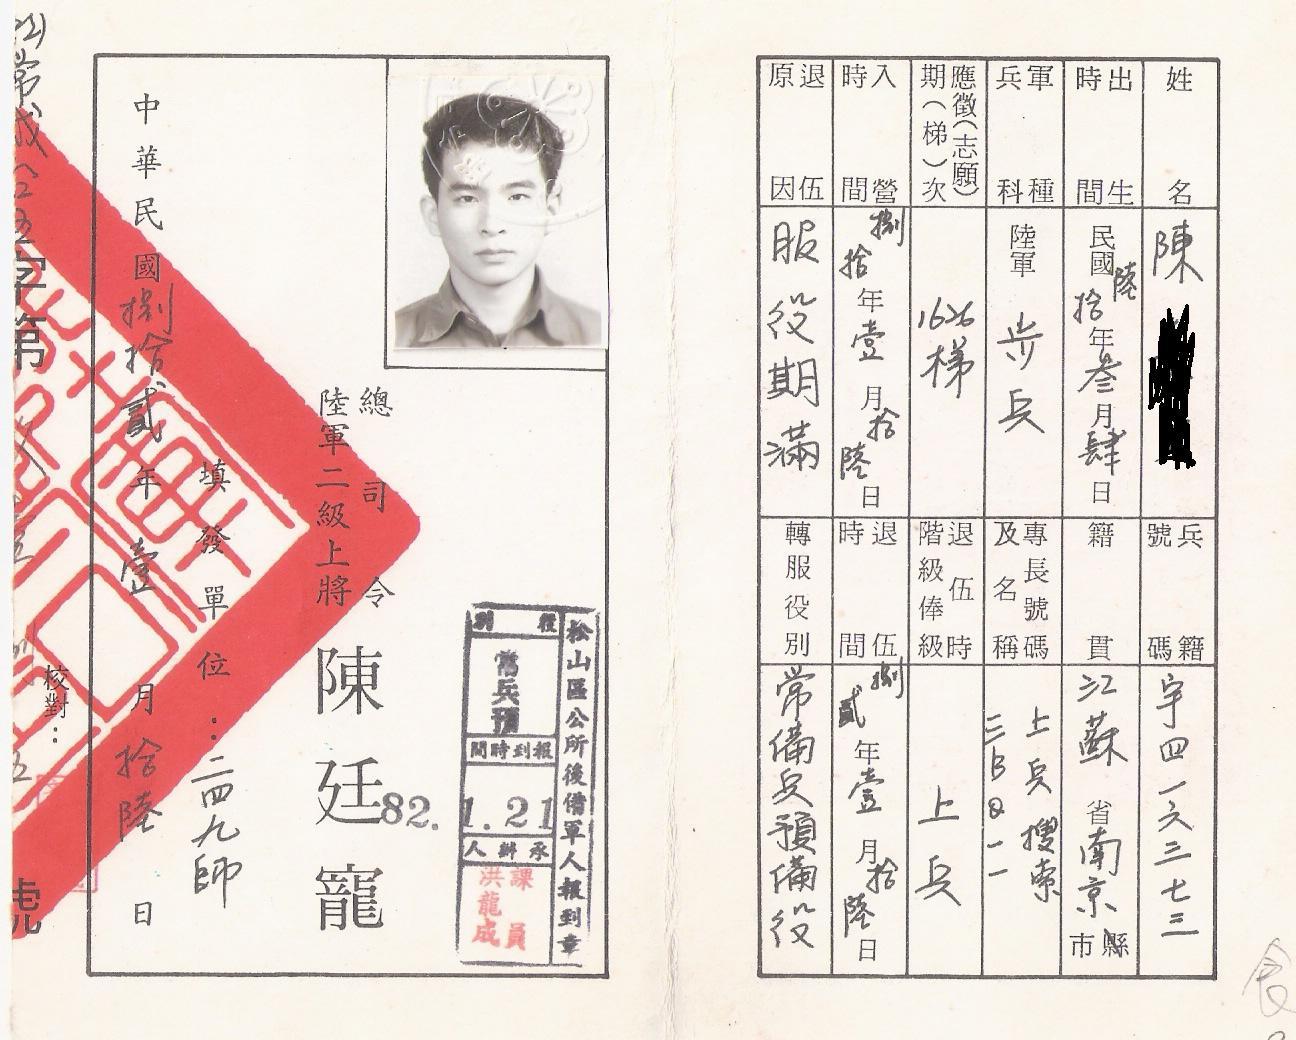 姓名
陳
出生時間
民國陸拾年叁月肆日
軍種兵科
陸軍
步兵
應徵(志願)
期(梯)次
1626梯
入營時間
捌拾年壹月拾陸日
退伍原因
服役期滿
兵籍號碼
宇四一六三七三
籍貫
江蘇省南京市縣
專長號碼
及名稱
上兵搜索
三BQ一一
退伍時
階級俸級
上兵
退伍時間
捌貳年壹月拾陸日
轉服役別
常備兵預備役
總司令
陸軍二級上將
陳廷寵
填發單位：二四九師
中華民國捌拾貳年壹月拾陸日
校對：
字第
號
松山區公所後備軍人報到章
役別
常兵預
報到時間
82.1.21
承辦人
課員
洪龍成